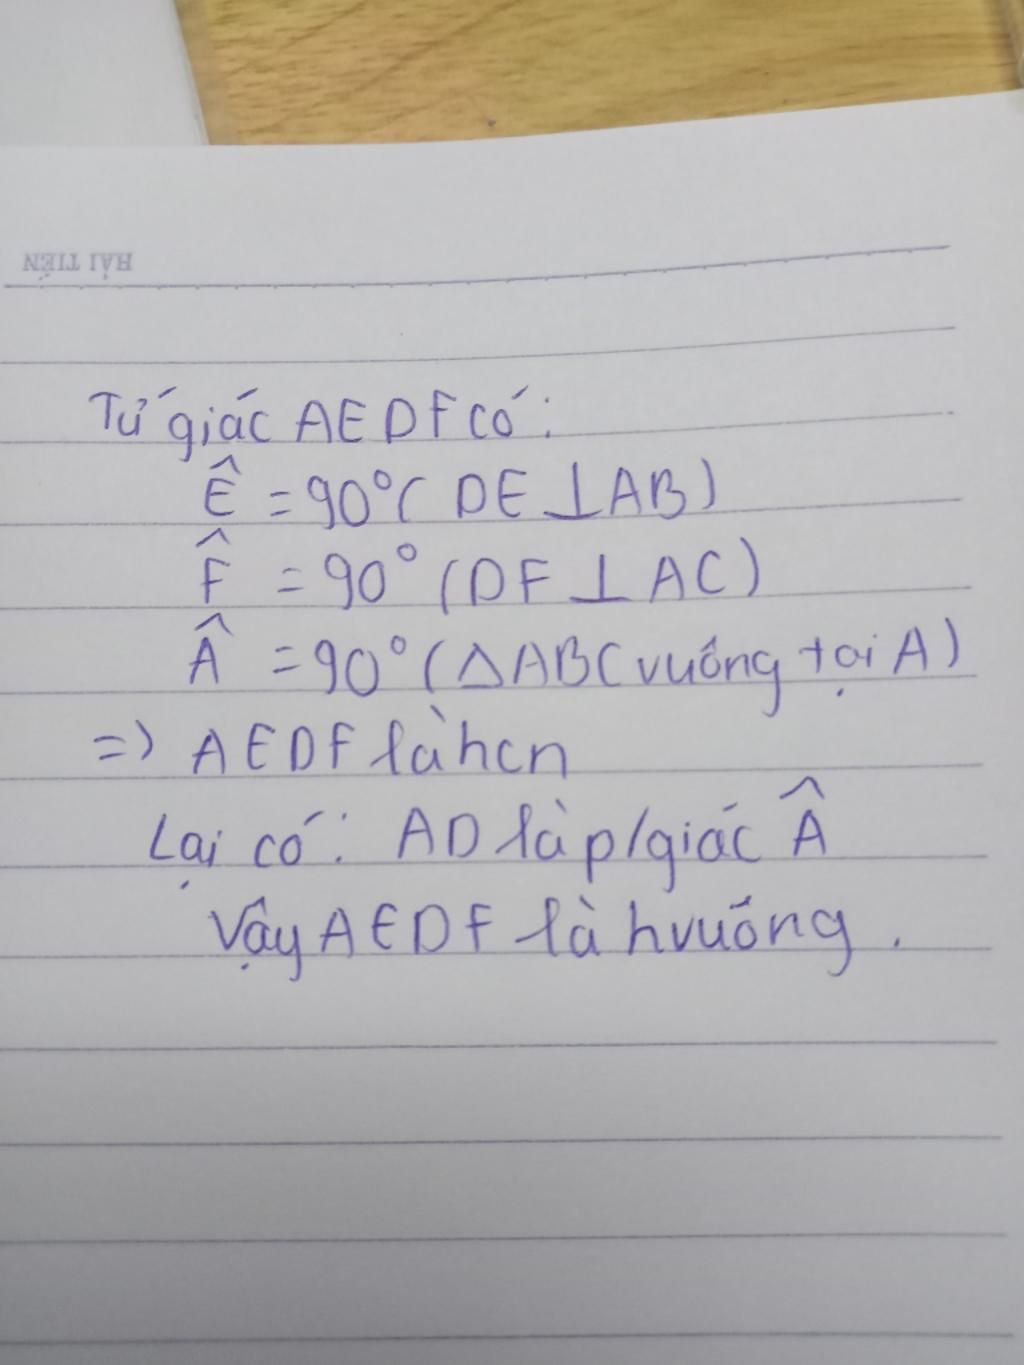 HẢI TIẾN
Tứ giác AEDF có:
Ê = 90° ( DE ⊥ AB )
F̂ = 90° ( DF ⊥ AC )
Â = 90° ( ΔABC vuông tại A )
=> AEDF là hcn
Lại có: AD là p/giác Â
Vậy AEDF là hvuông .